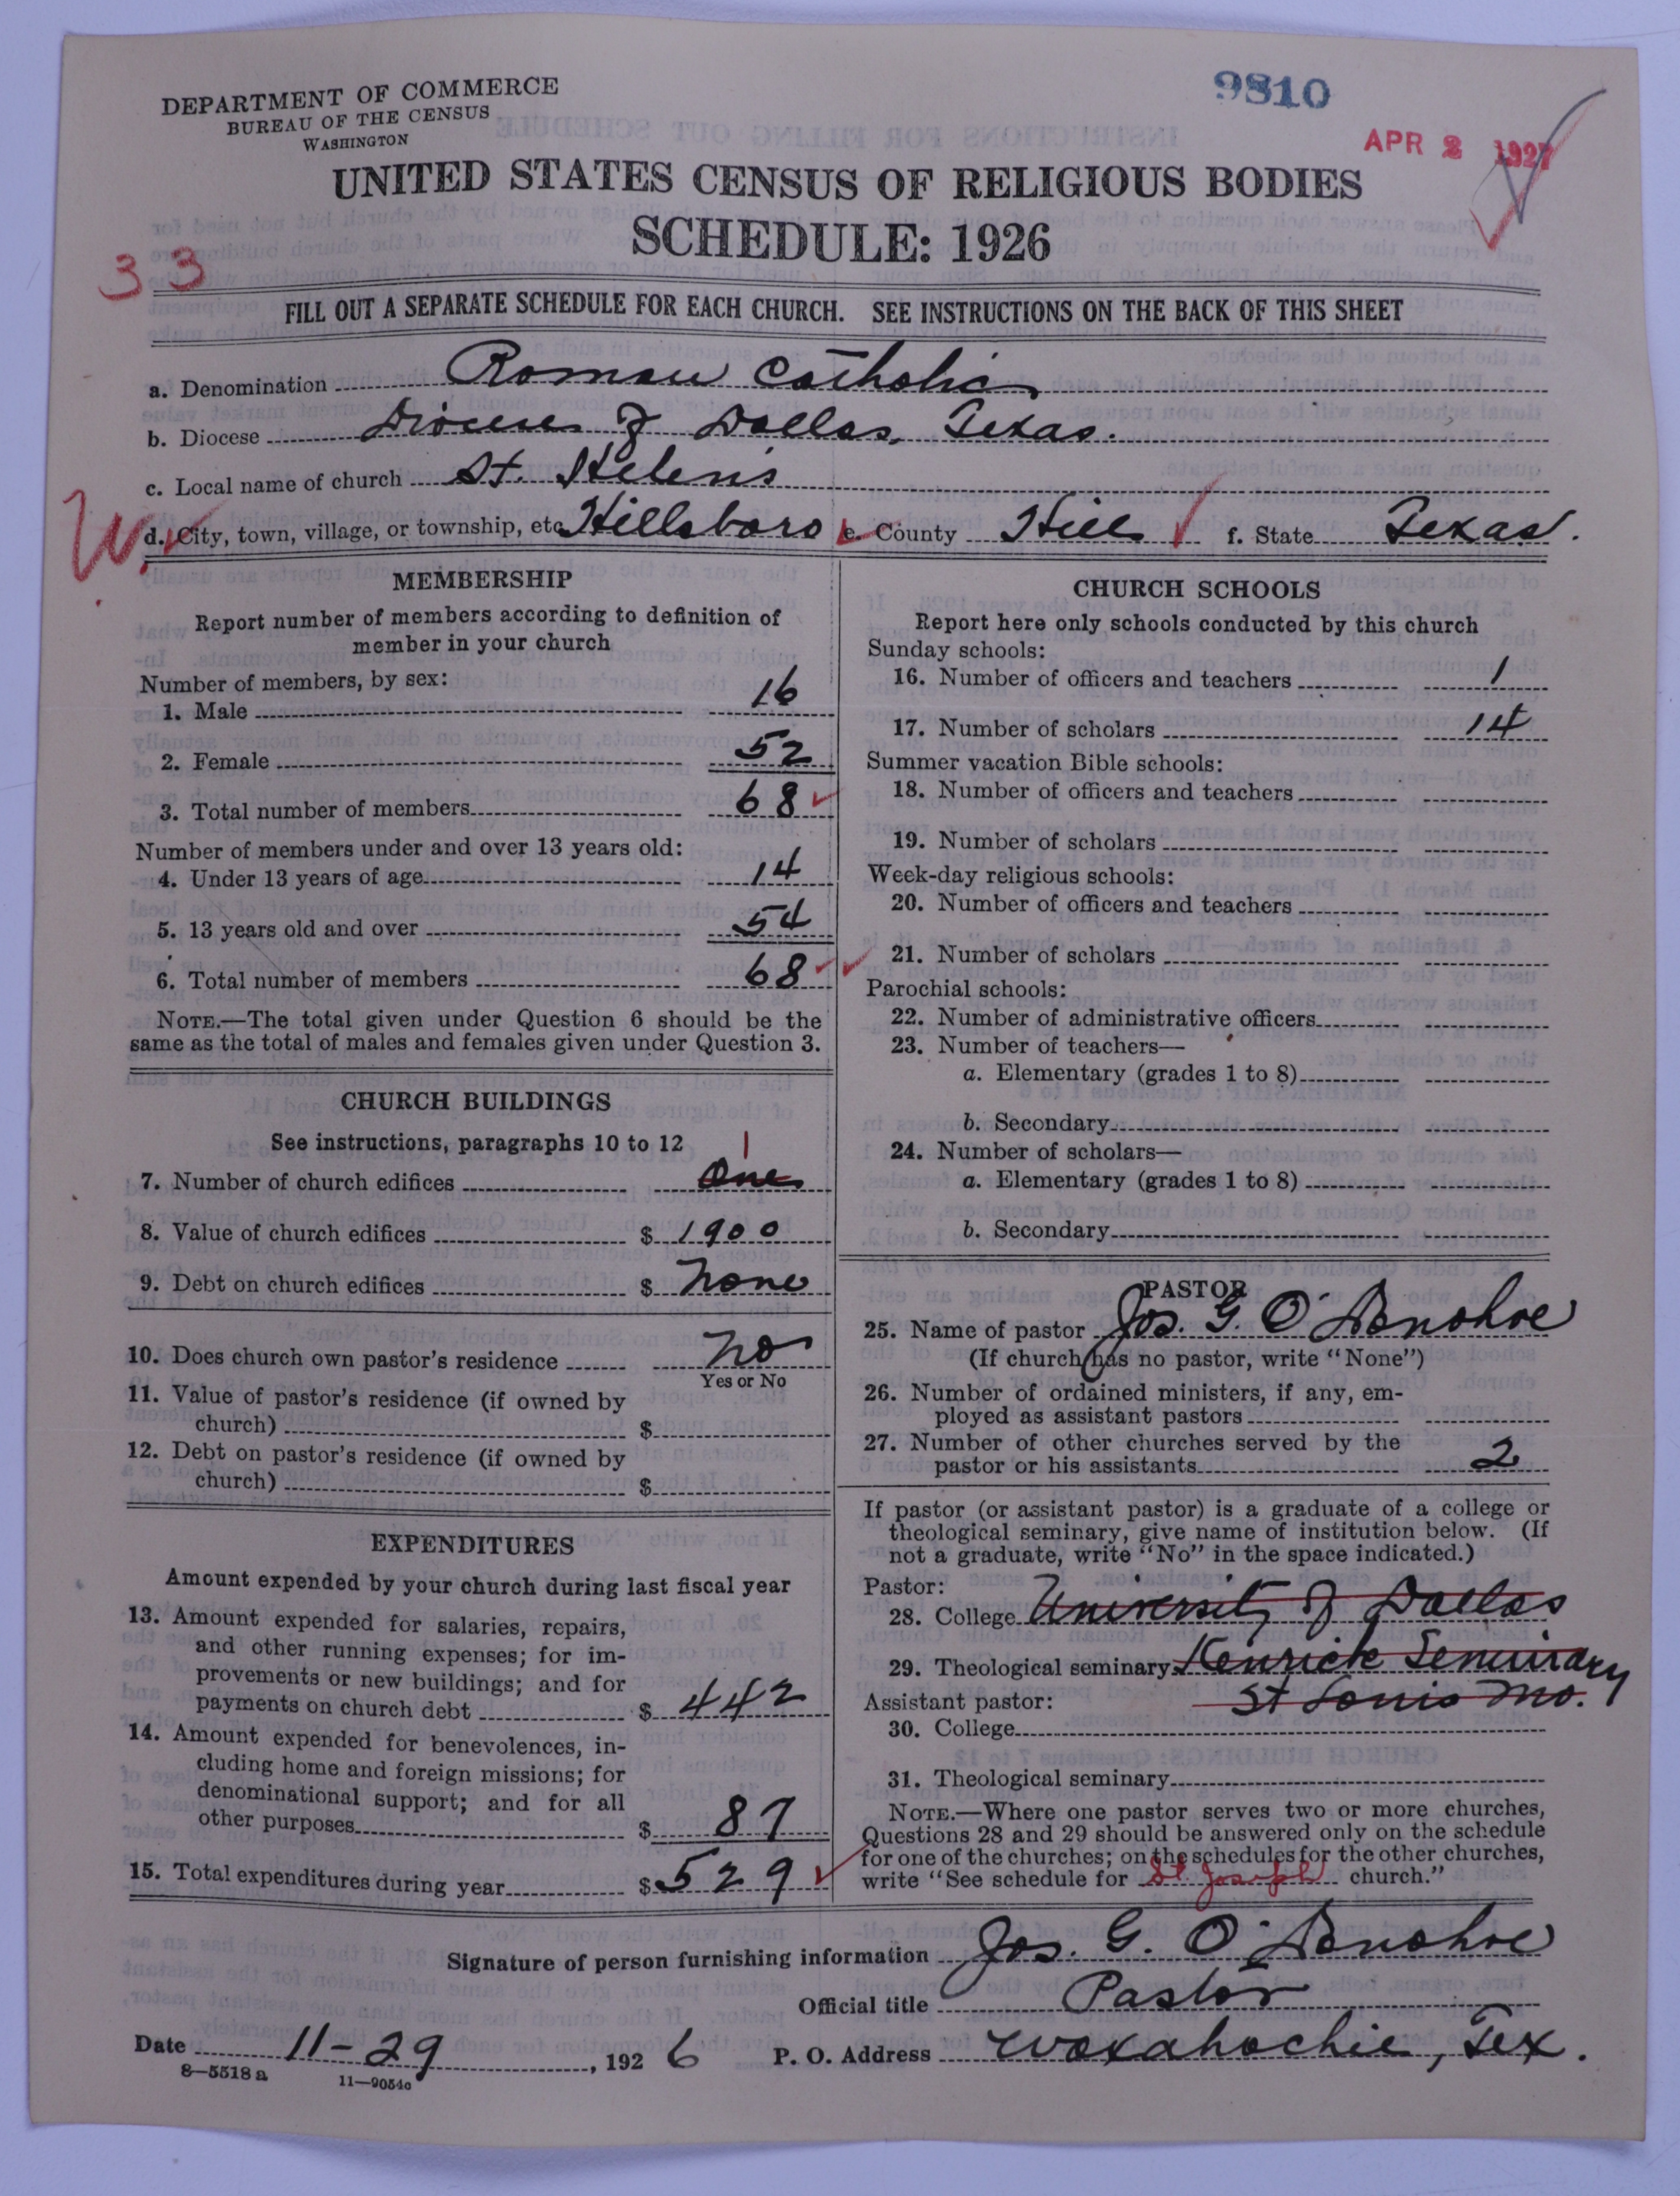 DEPARTMENT OF COMMERCE
BUREAU OF THE CENSUS
WASHINGTON
9810
APR 2 1927
UNITED STATES CENSUS OF RELIGIOUS BODIES
SCHEDULE: 1926
33
FILL OUT A SEPARATE SCHEDULE FOR EACH CHURCH. SEE INSTRUCTIONS ON THE BACK OF THIS SHEET
a. Denomination Roman Catholic
b. Diocese Diocese of Dallas, Texas.
c. Local name of church St. Helen's
W.
d. City, town, village, or township, etc. Hillsboro e. County Hill f. State Texas.
MEMBERSHIP
Report number of members according to definition of
member in your church
Number of members, by sex:
1. Male 16
2. Female 52
3. Total number of members 68
Number of members under and over 13 years old:
4. Under 13 years of age 14
5. 13 years old and over 54
6. Total number of members 68
NOTE.—The total given under Question 6 should be the
same as the total of males and females given under Question 3.
CHURCH BUILDINGS
See instructions, paragraphs 10 to 12
1
7. Number of church edifices One
8. Value of church edifices $ 1900
9. Debt on church edifices $ None
10. Does church own pastor's residence No
Yes or No
11. Value of pastor's residence (if owned by
church) $
12. Debt on pastor's residence (if owned by
church) $
EXPENDITURES
Amount expended by your church during last fiscal year
13. Amount expended for salaries, repairs,
and other running expenses; for im-
provements or new buildings; and for
payments on church debt $ 442
14. Amount expended for benevolences, in-
cluding home and foreign missions; for
denominational support; and for all
other purposes $ 87
15. Total expenditures during year $ 529
CHURCH SCHOOLS
Report here only schools conducted by this church
Sunday schools:
16. Number of officers and teachers 1
17. Number of scholars 14
Summer vacation Bible schools:
18. Number of officers and teachers
19. Number of scholars
Week-day religious schools:
20. Number of officers and teachers
21. Number of scholars
Parochial schools:
22. Number of administrative officers
23. Number of teachers—
a. Elementary (grades 1 to 8)
b. Secondary
24. Number of scholars—
a. Elementary (grades 1 to 8)
b. Secondary
PASTOR
25. Name of pastor Jos. G. O'Donohoe
(If church has no pastor, write "None")
26. Number of ordained ministers, if any, em-
ployed as assistant pastors
27. Number of other churches served by the
pastor or his assistants 2
If pastor (or assistant pastor) is a graduate of a college or
theological seminary, give name of institution below. (If
not a graduate, write "No" in the space indicated.)
Pastor:
28. College University of Dallas
29. Theological seminary Kenrick Seminary
St Louis Mo.
Assistant pastor:
30. College
31. Theological seminary
NOTE.—Where one pastor serves two or more churches,
Questions 28 and 29 should be answered only on the schedule
for one of the churches; on the schedules for the other churches,
write "See schedule for St Joseph church."
Signature of person furnishing information Jos. G. O'Donohoe
Official title Pastor
Date 11-29, 1926 P. O. Address Waxahachie, Tex.
8—5518a 11—9054c